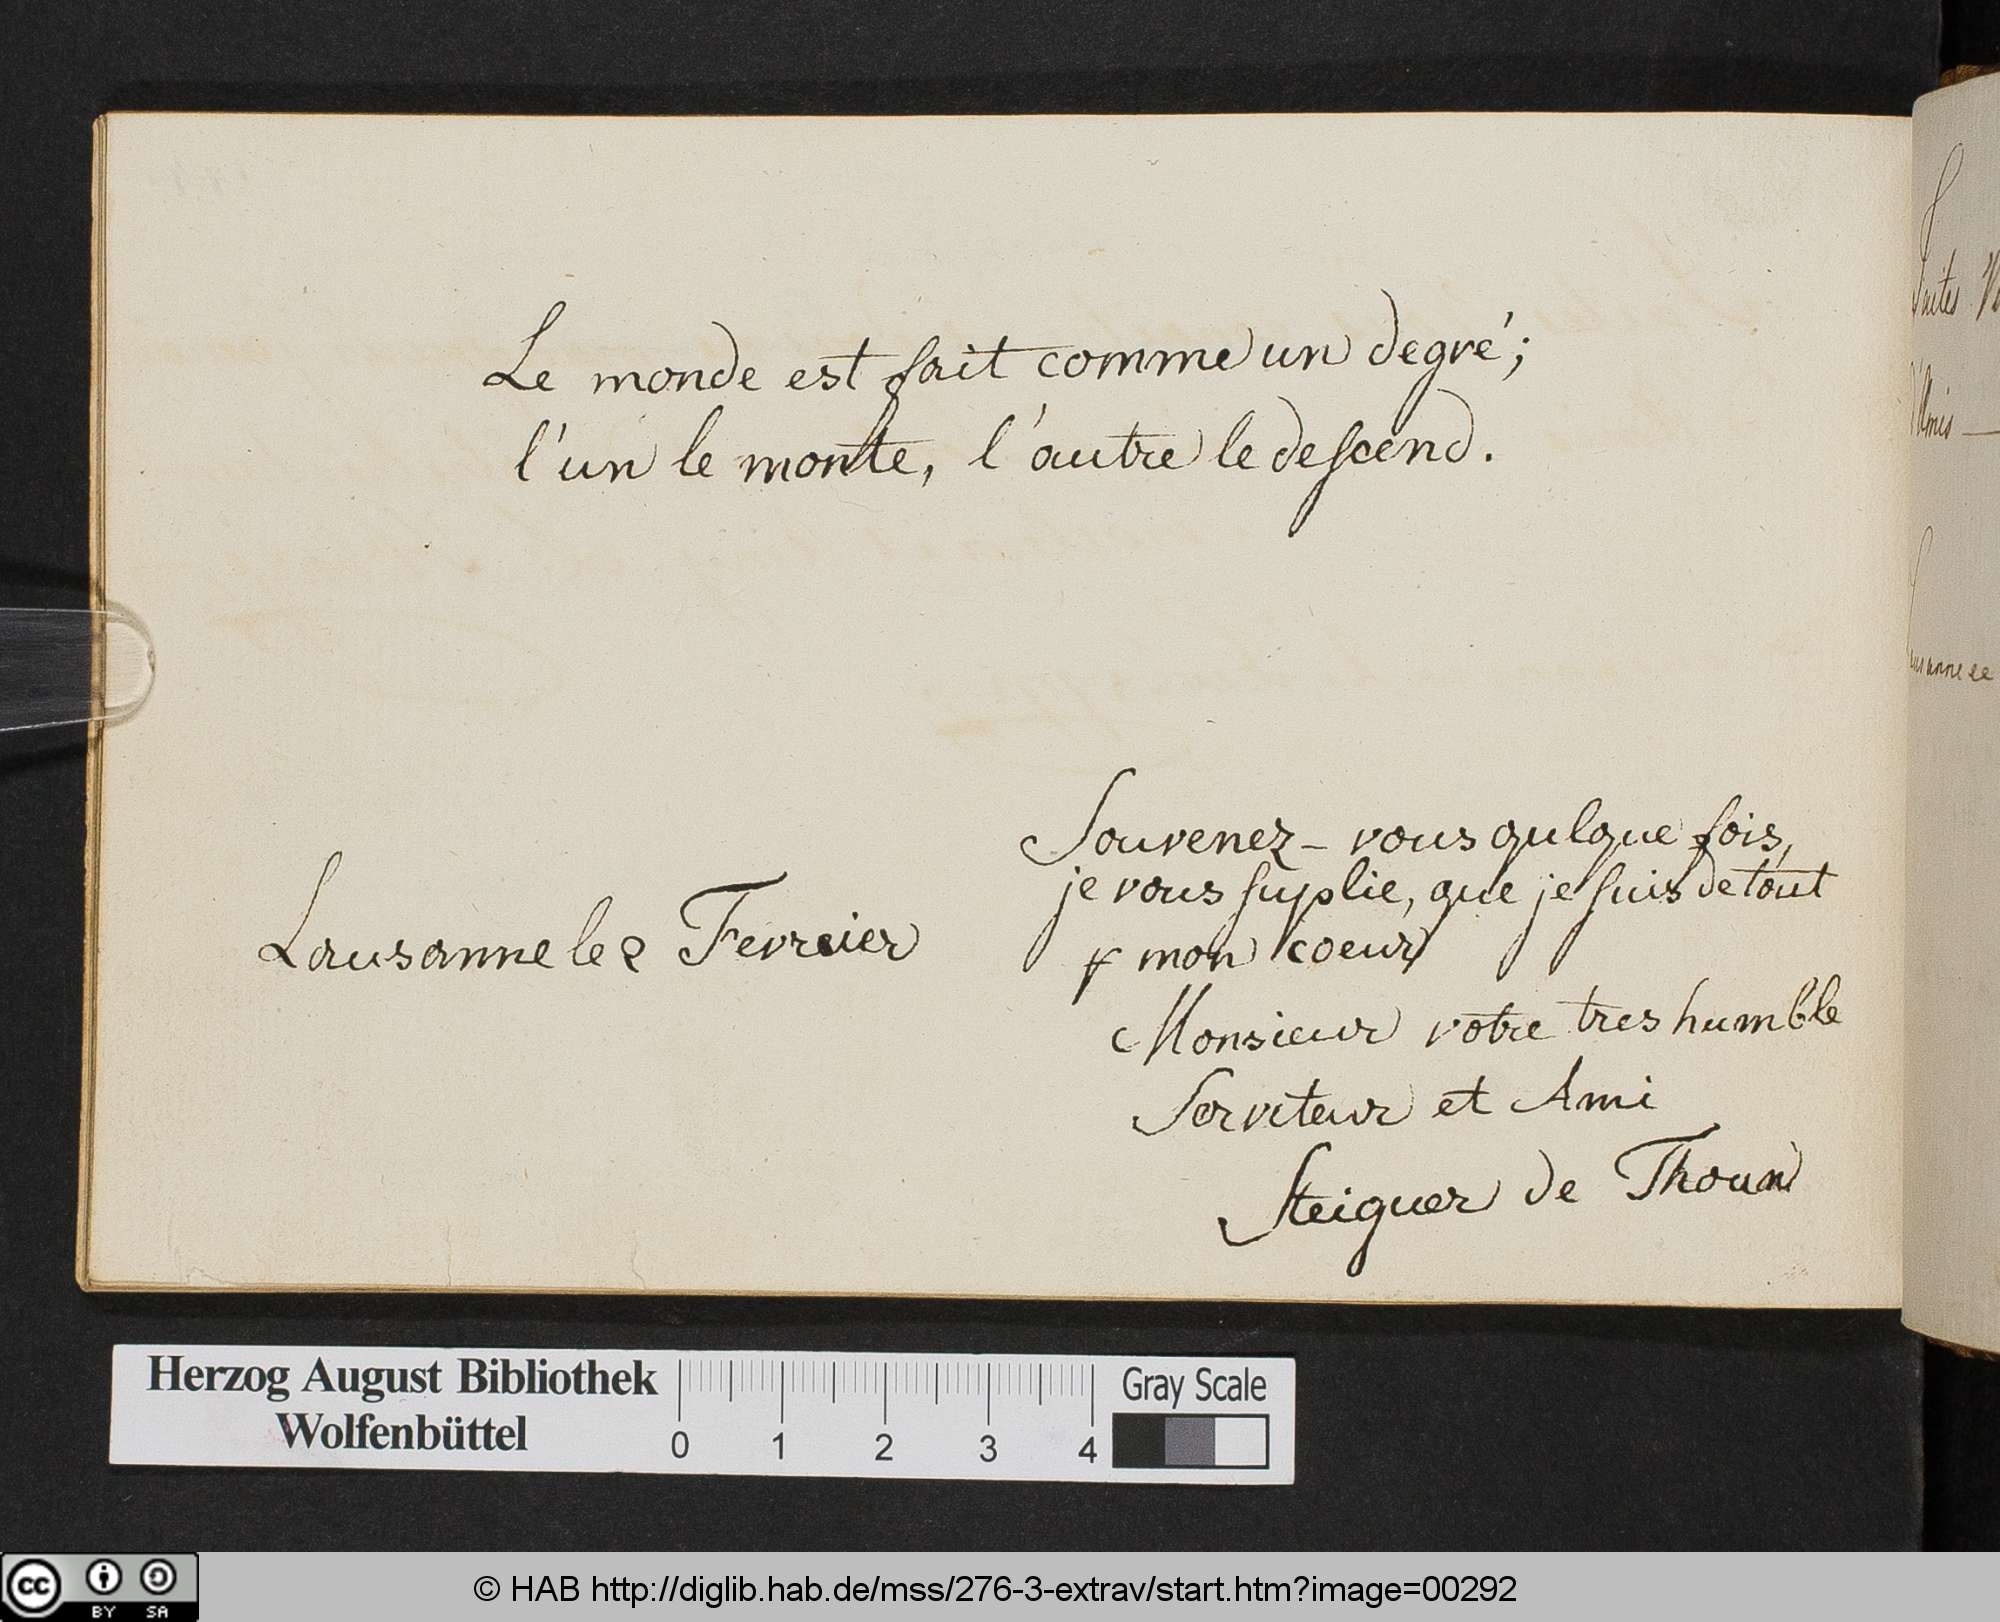 Le monde est fait comme un degré;
l'un le monte, l'autre le descend.
Souvenez-vous qulque fois,
je vous suplie, que je suis de tout
mon coeur
Lausanne le 2 Fevreier
Monsieur votre tres humble
Serviteur et Ami
Steiguer de Thoun
aites
Amis
usanne le
Herzog August Bibliothek
Wolfenbüttel
0 1 2 3 4
Gray Scale
cc BY SA
© HAB http://diglib.hab.de/mss/276-3-extrav/start.htm?image=00292